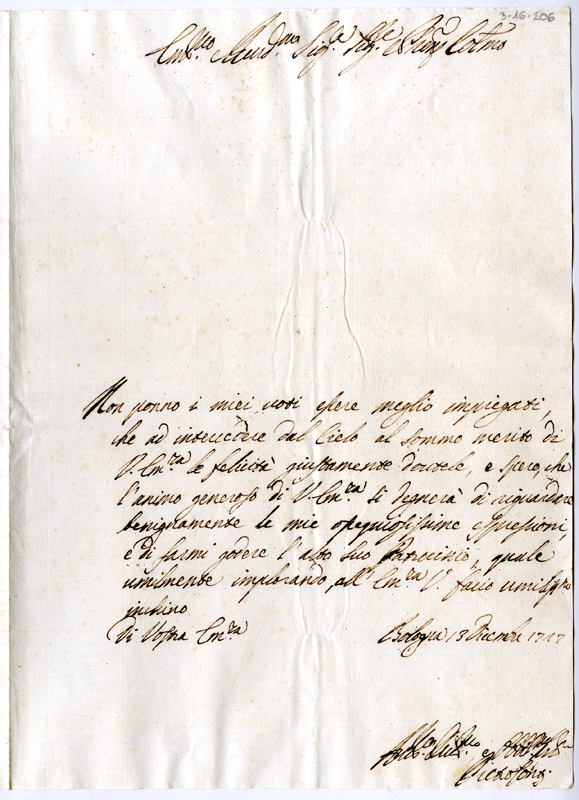 3-16-206
Em.mo Reverd.mo Sig.re Sig.re
Non ponno i miei voti essere meglio impiegati,
che ad intercedere dal Cielo al sommo merito di
V. Em.za le felicità giustamente dovutele, e spero, che
l'animo generoso di V. Em.za si degnerà di riguardare
benignamente le mie ossequiosissime espressioni,
e di farmi godere l'alto suo Patrocinio, quale
umilmente implorando, all' Em.za V. facio umilissimo
inchino
Di Vostra Em.za
Bologna 13 Dicembre 1717